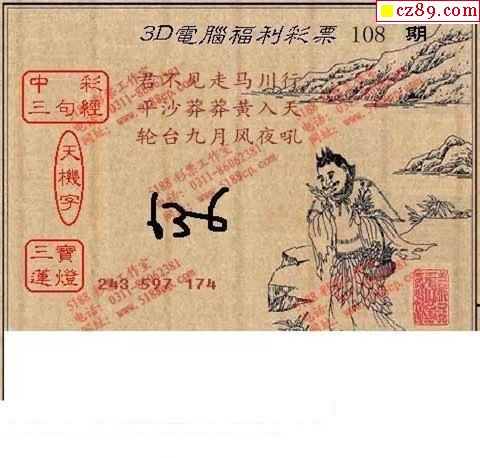 cz89.com
3D電腦福利彩票 108 期
中彩
三句經
君不见走马川行
平沙莽莽黄入天
轮台九月风夜吼
天機字
136
三寶
蓮燈
243 597 174
5188 彩票工作室
电话: 0311-86062381
网址: www.5188cp.com